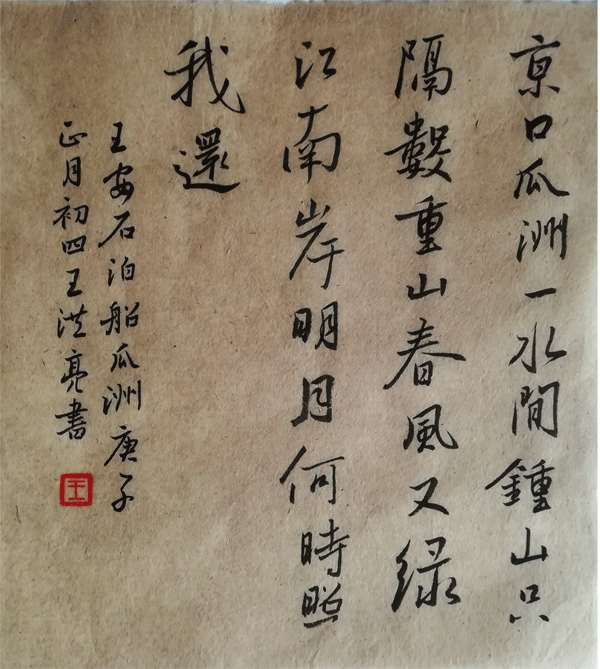 京口瓜洲一水間鍾山只
隔數重山春風又緑
江南岸明月何時照
我還
王安石泊船瓜洲庚子
正月初四王洪亮書
王